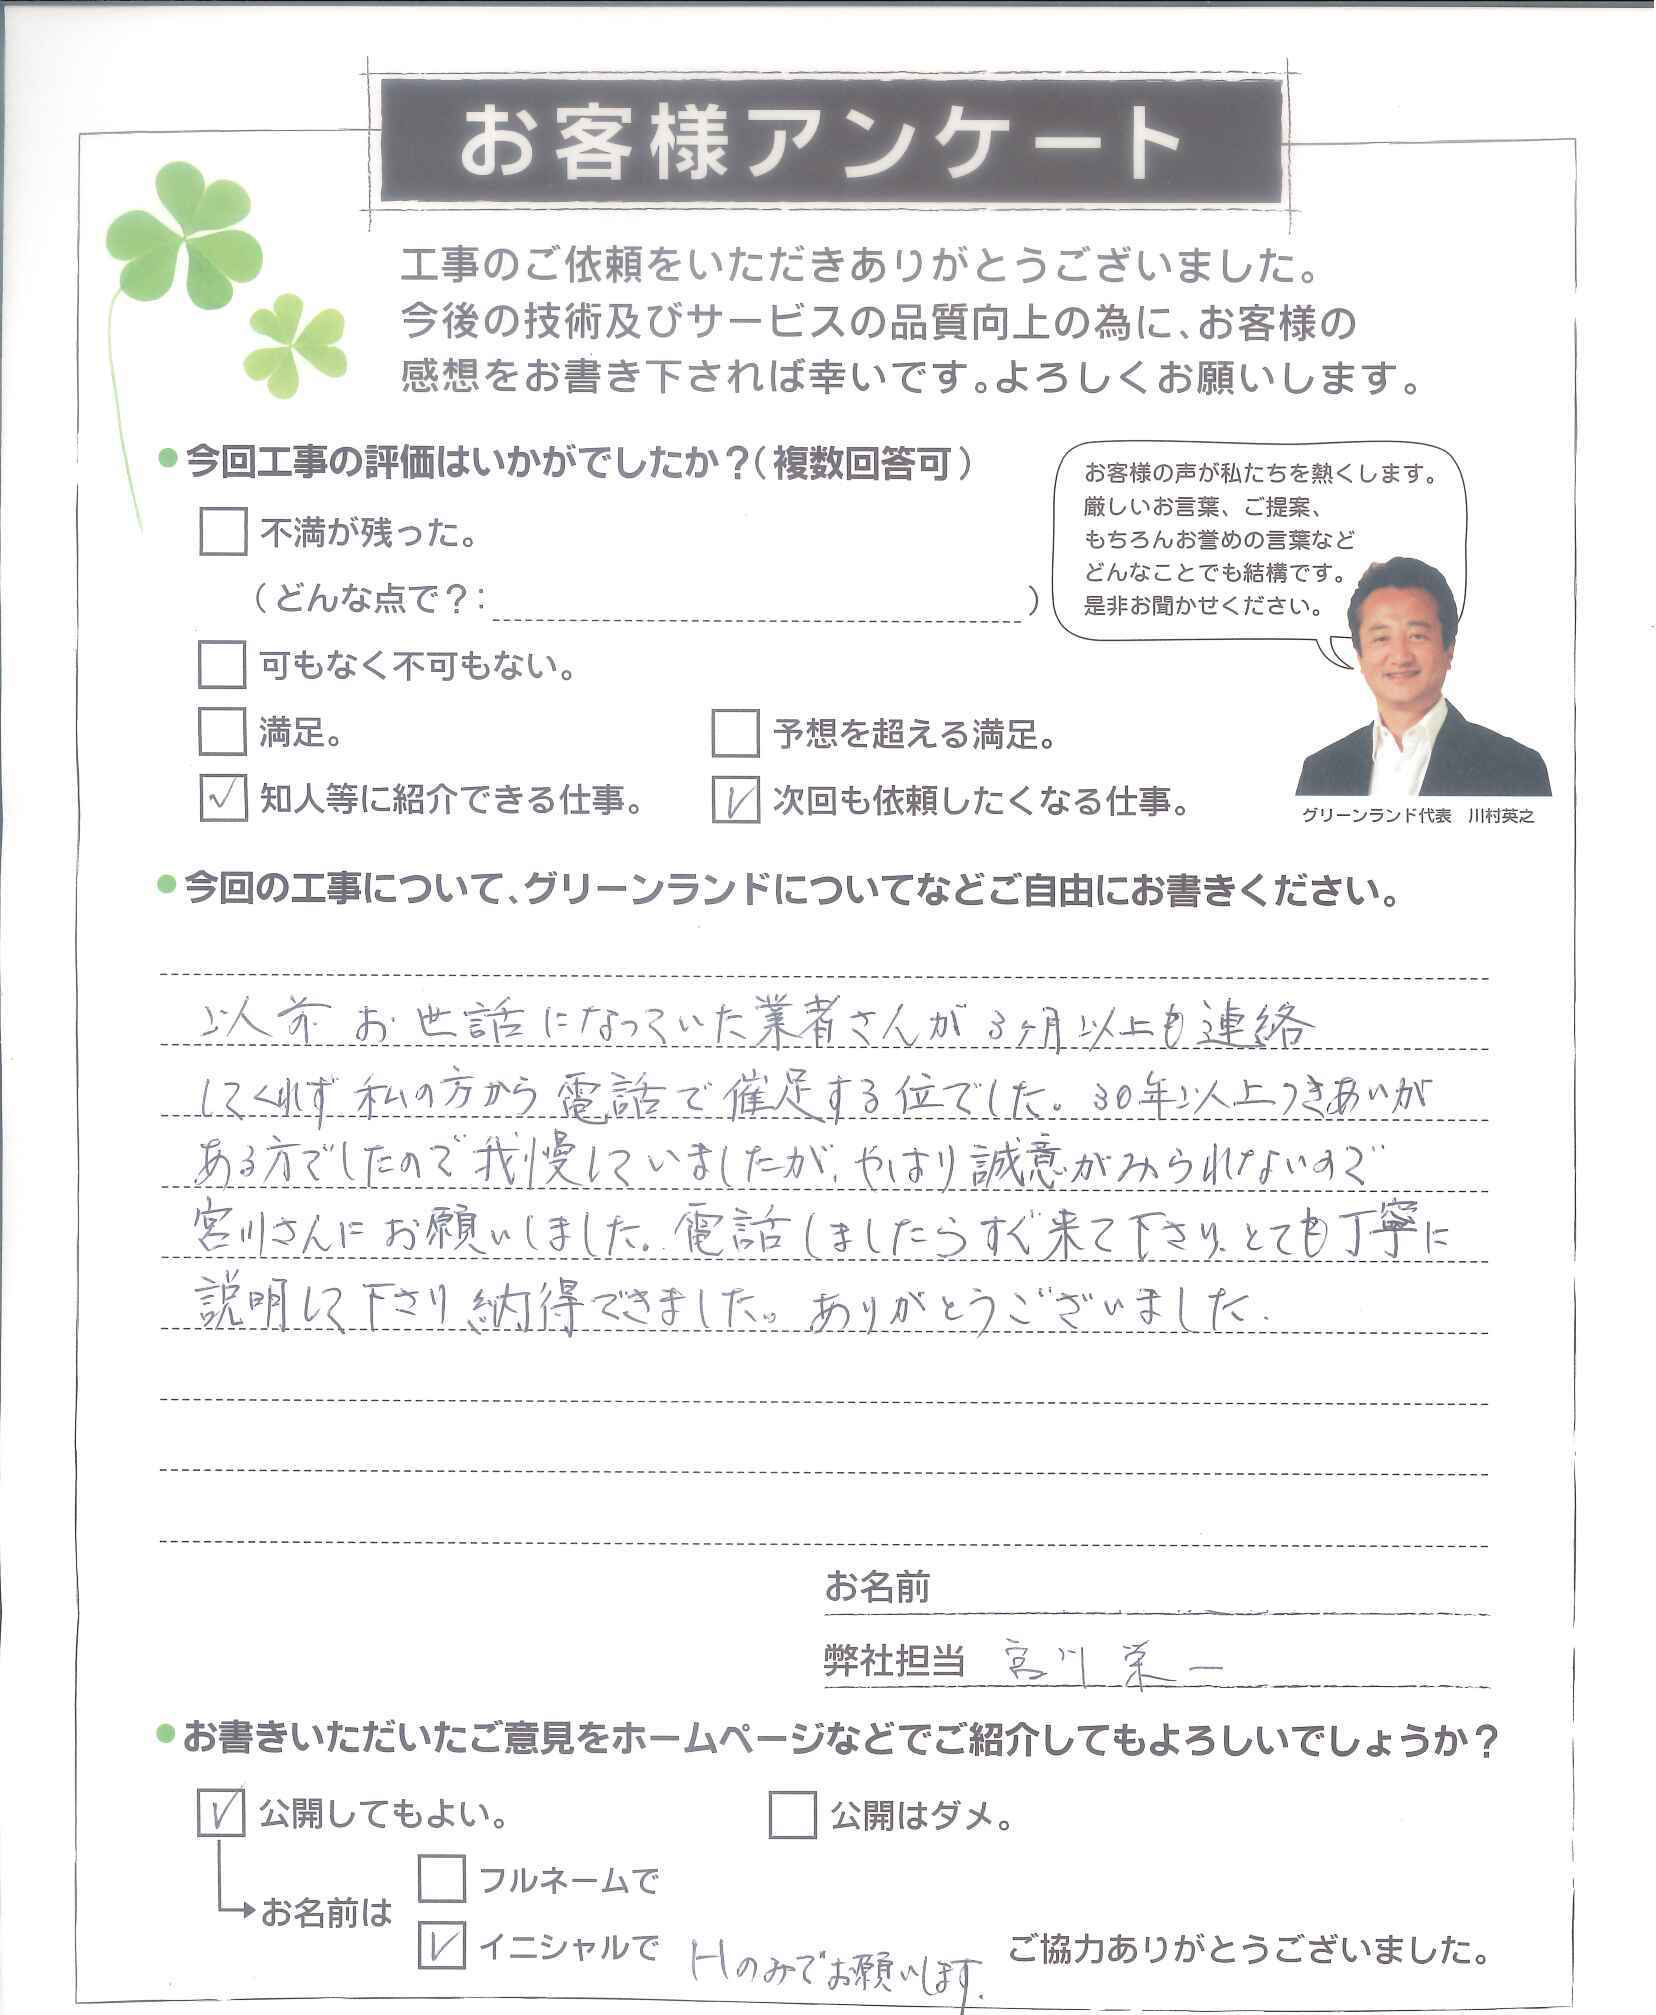 お客様アンケート
工事のご依頼をいただきありがとうございました。
今後の技術及びサービスの品質向上の為に、お客様の
感想をお書き下されば幸いです。よろしくお願いします。
●今回工事の評価はいかがでしたか？（複数回答可）
お客様の声が私たちを熱くします。
厳しいお言葉、ご提案、
もちろんお誉めの言葉など
どんなことでも結構です。
是非お聞かせください。
不満が残った。
（どんな点で？： ）
可もなく不可もない。
満足。 予想を超える満足。
知人等に紹介できる仕事。 次回も依頼したくなる仕事。
グリーンランド代表 川村英之
●今回の工事について、グリーンランドについてなどご自由にお書きください。
以前お世話になっていた業者さんが3ヶ月以上も連絡
してくれず私の方から電話で催促する位でした。30年以上つきあいが
ある方でしたので我慢していましたが、やはり誠意がみられないので
宮川さんにお願いしました。電話しましたらすぐ来て下さり、とても丁寧に
説明して下さり納得できました。ありがとうございました.
お名前
弊社担当 宮川栄一
●お書きいただいたご意見をホームページなどでご紹介してもよろしいでしょうか？
公開してもよい。 公開はダメ。
お名前は フルネームで
イニシャルで Hのみでお願いします. ご協力ありがとうございました。